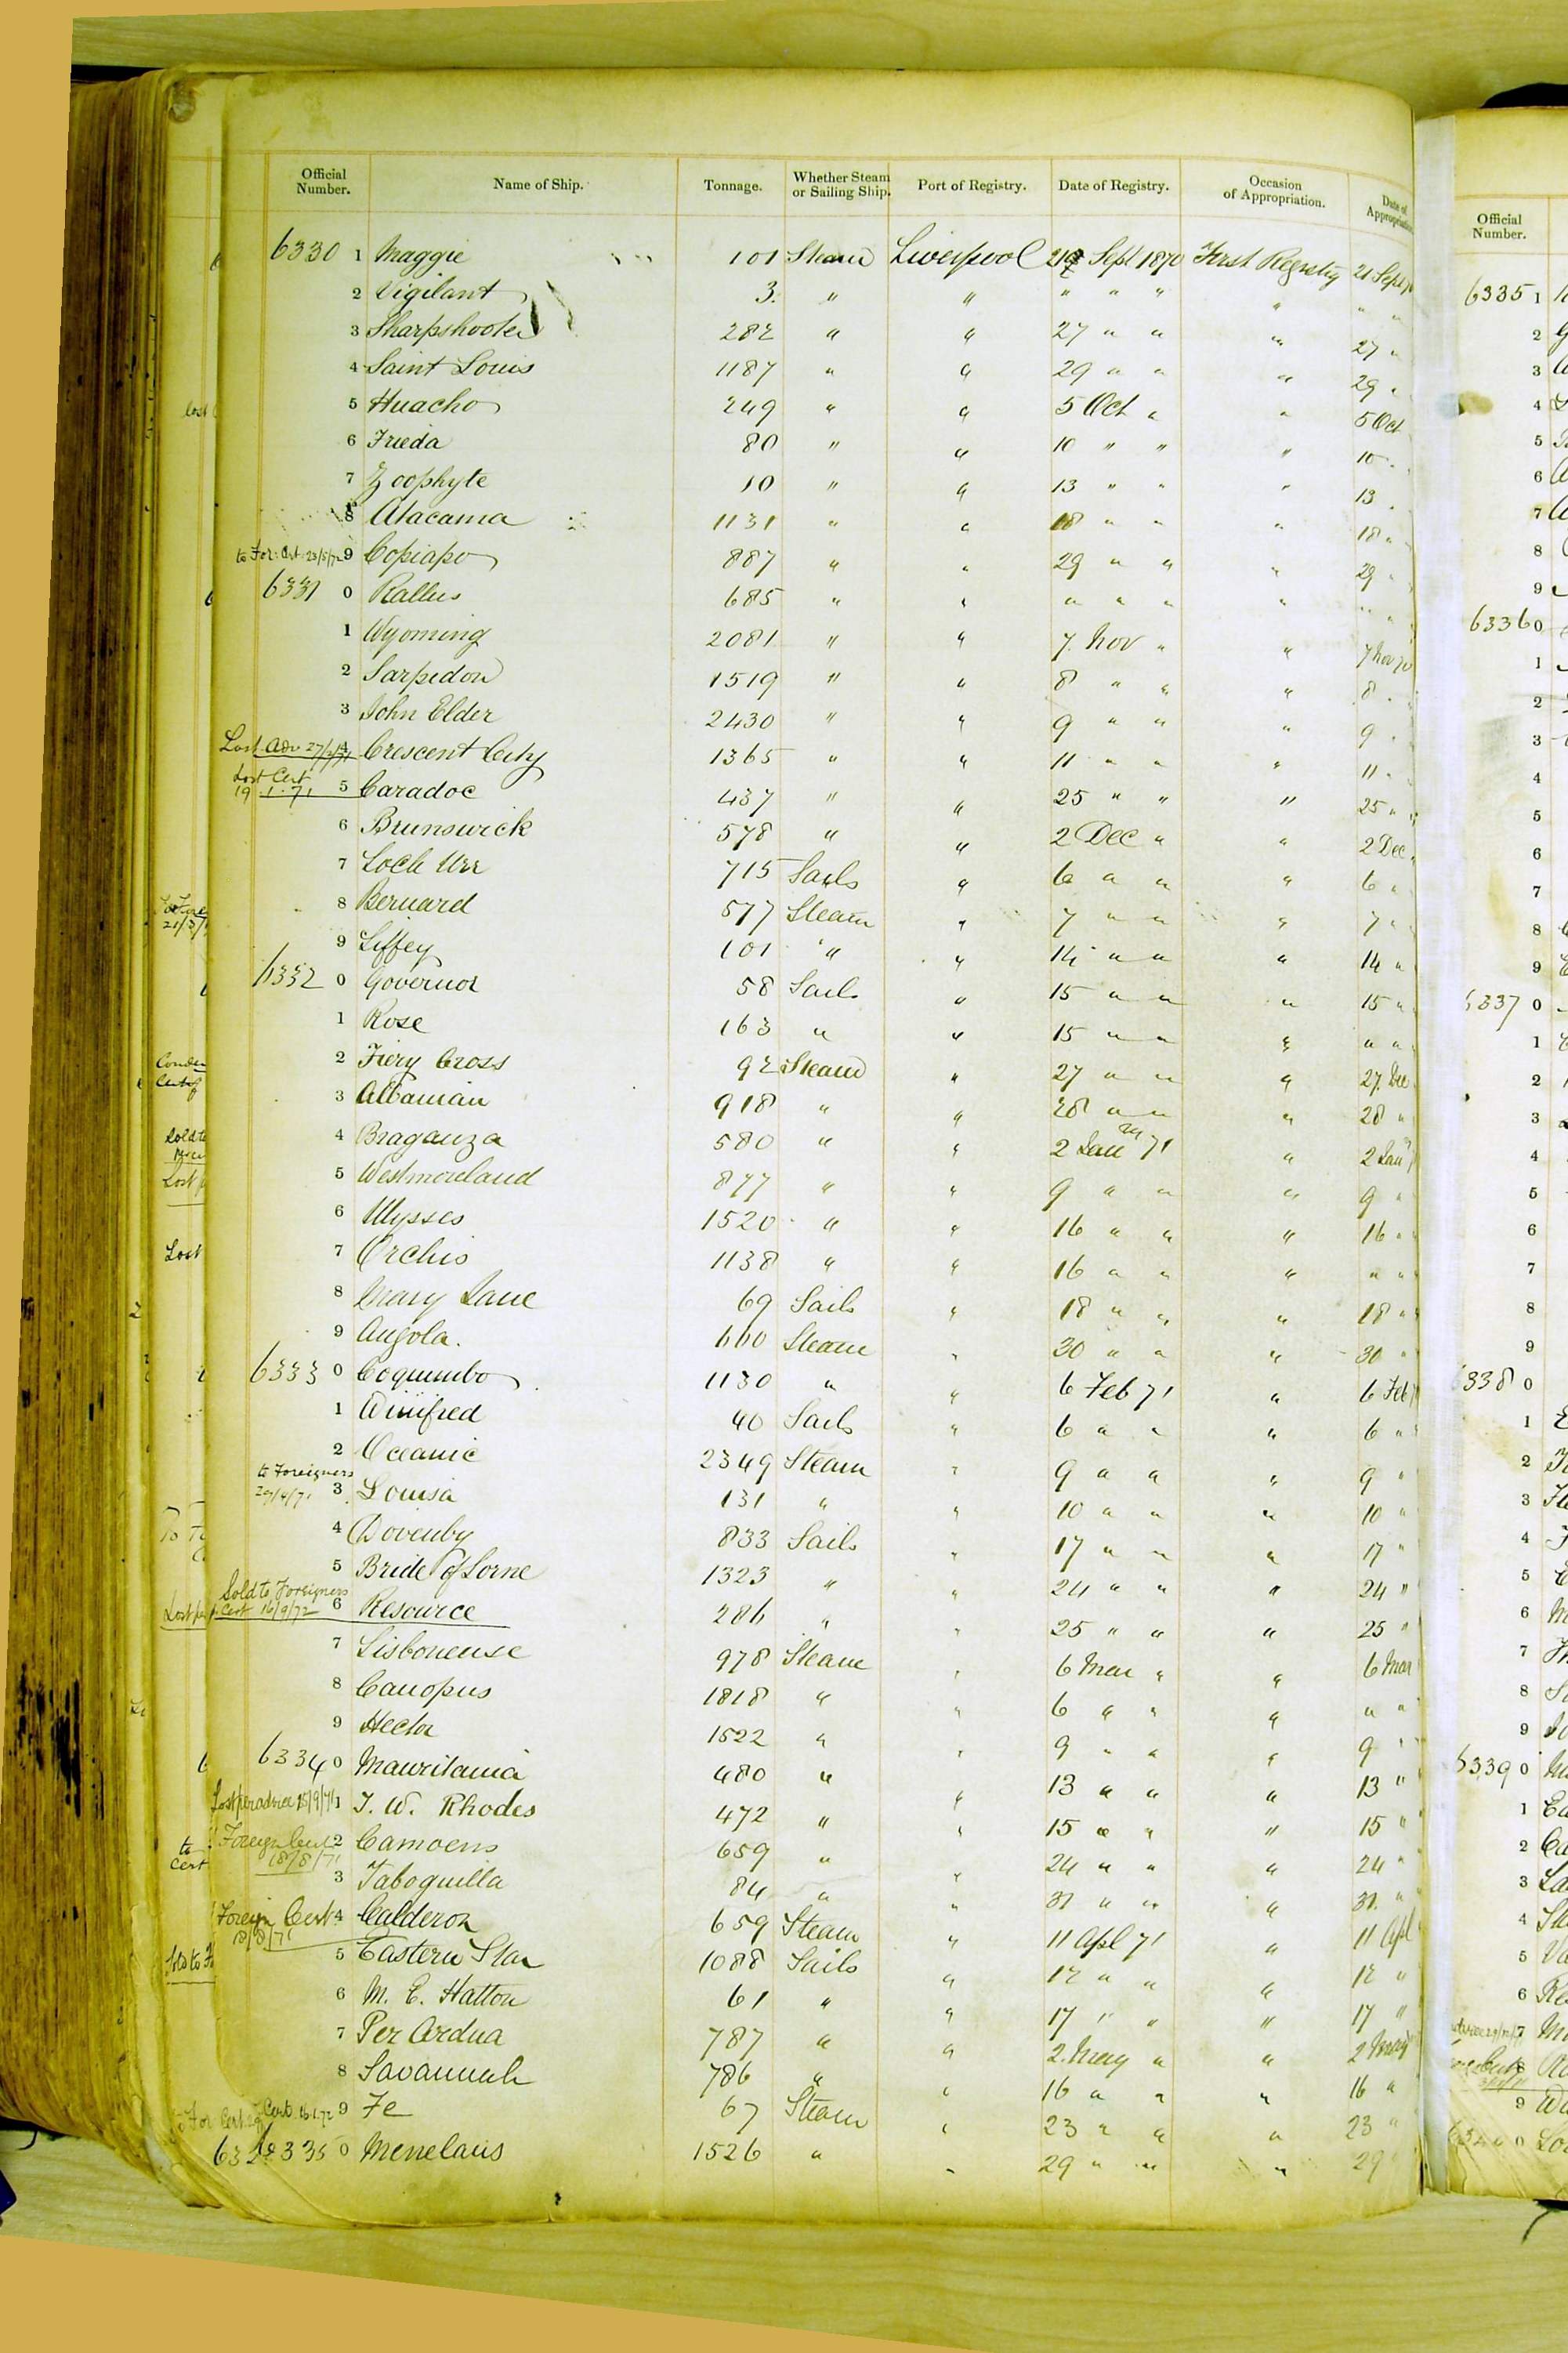 Official Number. Name of Ship. Tonnage. Whether Steam or Sailing Ship. Port of Registry. Date of Registry. Occasion of Appropriation. Date of Appropriation
6330 1 Maggie 101 Steam Liverpool 21 Sept 1870 First Registry 21 Sept 70
2 Vigilant 3 " " " " " " " "
3 Sharpshooter 282 " " 27 " " " 27 "
4 Saint Louis 1187 " " 29 " " " 29 "
5 Huacho 249 " " 5 Oct " " 5 Oct
6 Frieda 80 " " 10 " " " 10 "
7 Zoophyte 10 " " 13 " " " 13 "
8 Atacama 1131 " " 18 " " " 18 "
to For. Cert 23/5/72 9 Copiapo 887 " " 29 " " " 29 "
6331 0 Rallus 685 " " " " " " " "
1 Wyoming 2081 " " 7 Nov " " 7 Nov 70
2 Sarpedon 1519 " " 8 " " " 8 "
3 John Elder 2430 " " 9 " " " 9 "
Lost Adv 27/2/71 4 Crescent City 1365 " " 11 " " " 11 "
Lost Cert 19.1.71 5 Caradoc 437 " " 25 " " " 25 "
6 Brunswick 578 " " 2 Dec " " 2 Dec
7 Loch Urr 715 Sails " 6 " " " 6 "
8 Bernard 577 Steam " 7 " " " 7 "
9 Liffey 101 " " 14 " " " 14 "
6332 0 Governor 58 Sails " 15 " " " 15 "
1 Rose 163 " " 15 " " " " "
2 Fiery Cross 92 Steam " 27 " " " 27 Dec
3 Albanian 918 " " 28 " " " 28 "
4 Braganza 580 " " 2 Jany 71 " 2 Jany
5 Westmoreland 877 " " 9 " " " 9 "
6 Ulysses 1520 " " 16 " " " 16 "
7 Orchis 1138 " " 16 " " " " "
8 Mary Jane 69 Sails " 18 " " " 18 "
9 Angola. 660 Steam " 30 " " " 30 "
6333 0 Coquimbo 1130 " " 6 Feb 71 " 6 Feb
1 Winifred 40 Sails " 6 " " " 6 "
2 Oceanic 2349 Steam " 9 " " " 9 "
to Foreigners 29/4/71 3 Louisa 131 " " 10 " " " 10 "
4 Dovenby 833 Sails " 17 " " " 17 "
5 Bride of Lorne 1323 " " 24 " " " 24 "
Sold to Foreigners Cert 16/9/72 6 Resource 286 " " 25 " " " 25 "
7 Lisbonense 978 Steam " 6 Mar " " 6 Mar
8 Canopus 1818 " " 6 " " " " "
9 Hector 1522 " " 9 " " " 9 "
6334 0 Mauritania 480 " " 13 " " " 13 "
Lost per advice 15/9/71 1 J. W. Rhodes 472 " " 15 " " " 15 "
Foreign Cert 18/8/71 2 Camoens 659 " " 24 " " " 24 "
3 Taboguilla 84 " " 31 " " " 31 "
Foreign Cert 18/8/71 4 Calderon 659 Steam " 11 Apl 71 " 11 Apl
5 Eastern Star 1088 Sails " 12 " " " 12 "
6 M. E. Hatton 61 " " 17 " " " 17 "
7 Per Ardua 787 " " 2 May " " 2 May
8 Savannah 786 " " 16 " " " 16 "
Cert. 16.1.72 9 Fe 67 Steam " 23 " " " 23 "
6335 0 Menelaus 1526 " " 29 " " " 29
Official Number.
6335 1
2
3
4
5
6
7
8
9
6336 0
1
2
3
4
5
6
7
8
9
6337 0
1
2
3
4
5
6
7
8
9
6338 0
1
2
3
4
5
6
7
8
9
6339 0
1
2
3
4
5
6
7
9
0